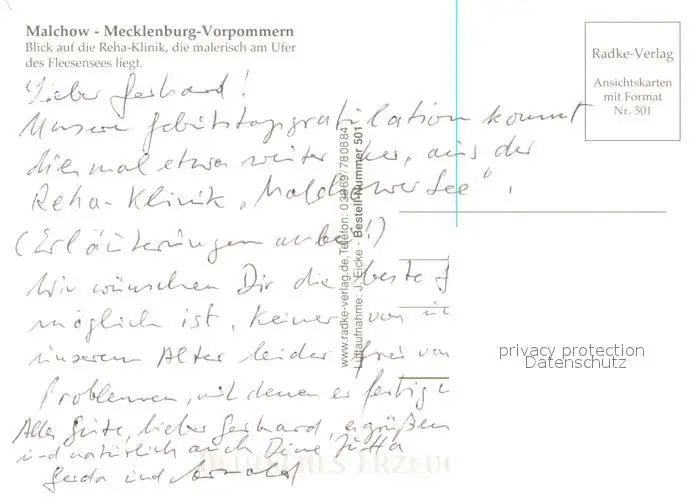 Malchow - Mecklenburg-Vorpommern
Blick auf die Reha-Klinik, die malerisch am Ufer
des Fleesensees liegt.
Radke-Verlag
Ansichtskarten
mit Format
Nr. 501
Lieber Gerhard!
Unsere Geburtstagsgratulation kommt
diesmal etwas weiter her, aus der
Reha-Klinik „Malchower See".
(Erläuterungen anbei!)
Wir wünschen Dir die beste G
möglich ist. Keiner von
unserem Alter leider frei von
Problemen, mit denen er fertig
Alles Gute, lieber Gerhard,
und natürlich auch Deine Jutta
Gerda und Arnold
www.radke-verlag.de, Telefon: 03969/780884
Luftaufnahme: J. Eicke - Bestell-Nummer 501
privacy protection
Datenschutz